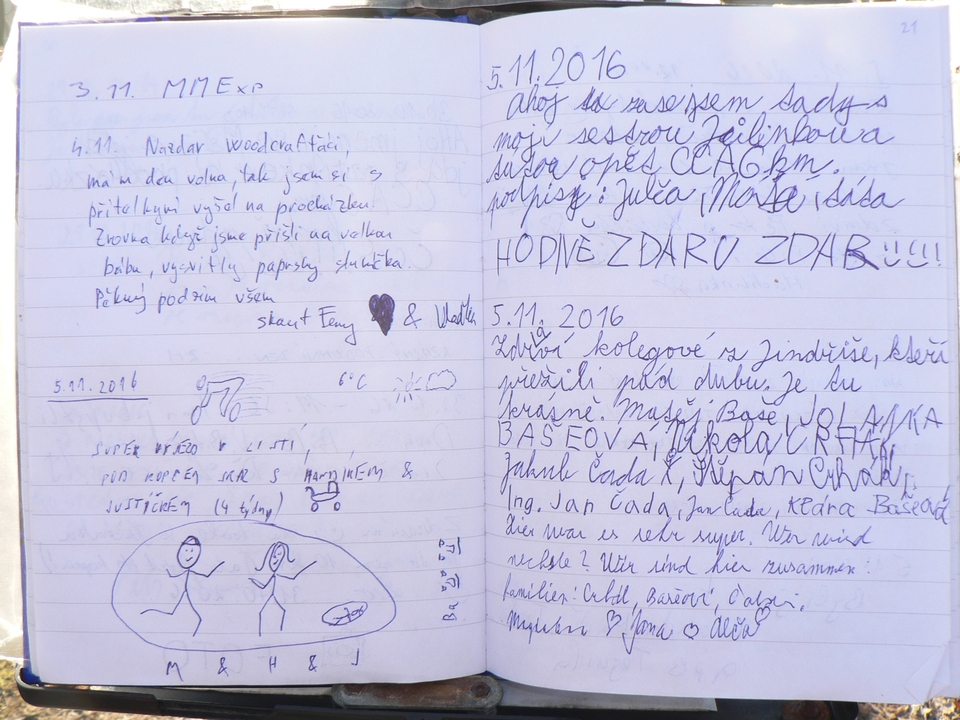 3.11. MMExp
4.11. Nazdar Woodcrafťáci,
mám den volna, tak jsem si s
přítelkyní vyšel na procházku.
Zrovna když jsme přišli na velkou
bábu, vysvitly paprsky sluníčka.
Pěkný podzim všem
skaut Femy &
5.11.2016 6°C
SUPER VÝJEZD V LISTÍ,
POD KOPCEM SRAZ S &
JUSTÝČKEM (4 týdny)
M & H & J
21
5.11.2016
Ahoj zase jsem tady s
mojí sestrou
opět CCA 6 km.
podpisy: Julča, Sáša
HODNĚ ZDARU ZDAR!!!
5.11.2016
Zdraví kolegové z Jindřiše, kteří
přežili pád dubu. Je tu
krásně. Matěj Baše, JOLANKA
BAŠEOVÁ, Nikola CRHÁK,
Jakub Čada, Štěpán Crhák,
Ing. Jan Čada, Jan Čada, Klára Bašeová
Hier war es sehr super. Wer wird
nechste? Wir sind hier zusammen:
familien:
Jana